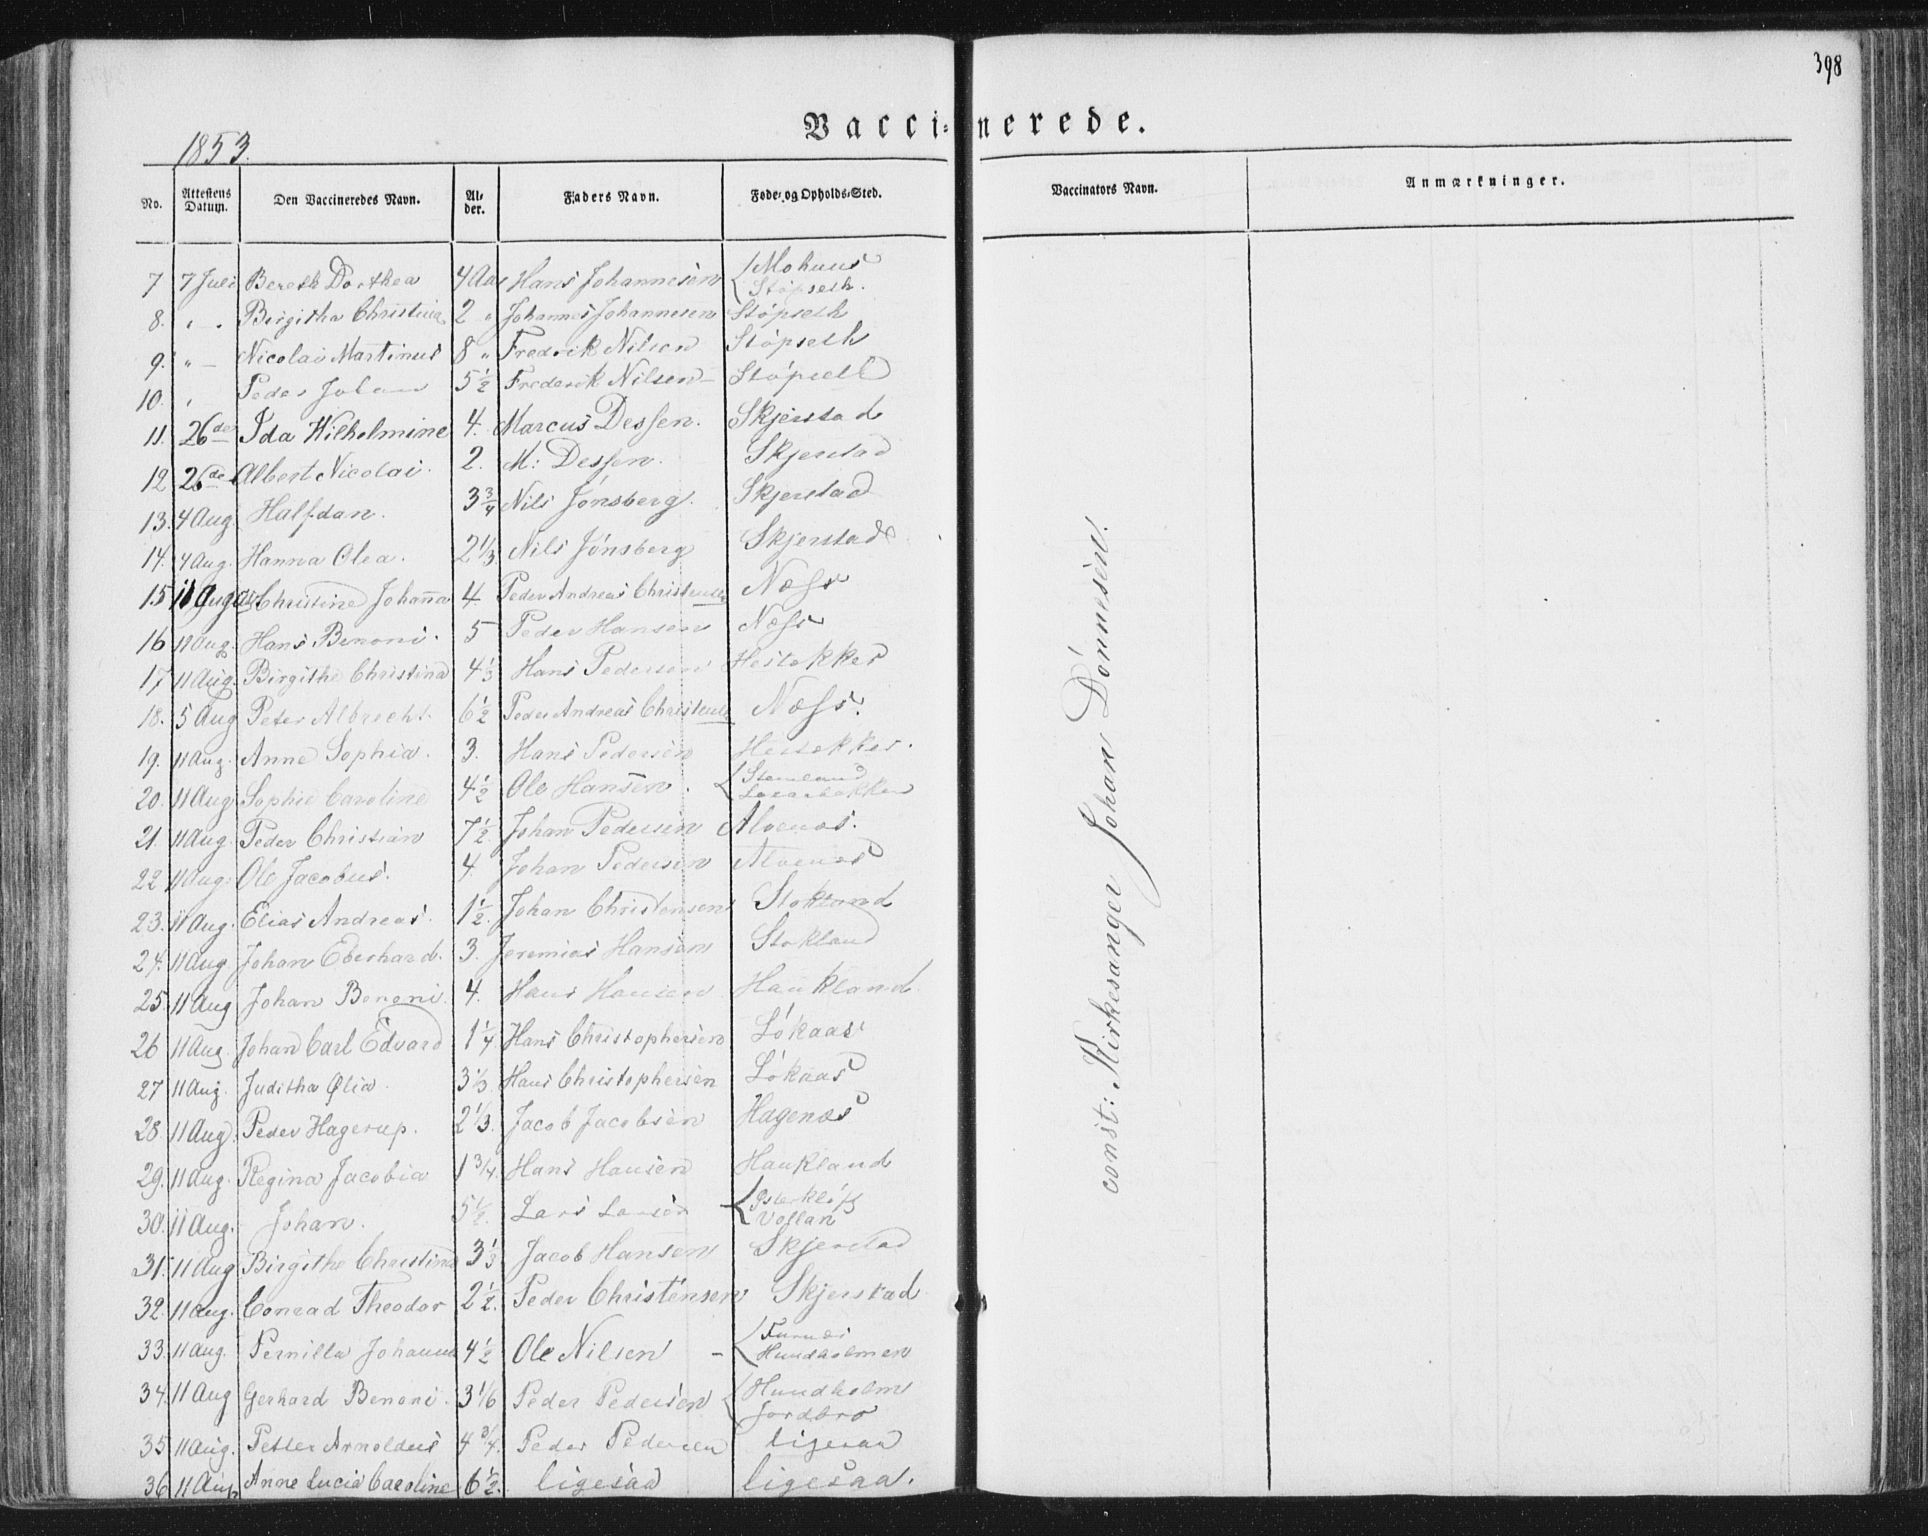 398
Vaccinerede.
1853.
No. Attestens Datum. Den Vaccineredes Navn. Alder. Faders Navn. Føde- og Opholds-Sted. Vaccinators Navn. Anmærkninger.
7 7 Juli Bereth Dorthea 4 Aar Hans Johannesen Mohuus
Støpseth.
8. " - Birgitha Christina 2 " Johannes Johannesen Støpseth
9. " - Nicolai Martinus 8 " Fredrik Nilsen Støpseth
10. " Peder Johan 5 1/2 Frederik Nilsen - Støpseth
11. 26de Ida Wilhelmine 4. Marcus Dessen. Skjerstad
12 26de Albert Nicolai. 2. M: Dessen. Skjerstad
13. 4 Aug. Halfdan. 3 3/4 Nils Jønsberg. Skjerstad
14. 4 Aug. Hanna Olea. 2 1/3 Nils Jønsberg Skjerstad
15 11 Aug Christine Johanna 4. Peder Andreas Christensen Næss
16 11 Aug. Hans Benoni. 5 Peder Hansen Næss
17 11 Aug. Birgithe Christina 4 1/3 Hans Pedersen Hestekker
18. 5 Aug Peter Albrecht. 6 1/2 Peder Andreas Christensen Næss.
19. 11 Aug. Anne Sophia. 3. Hans Pedersen Hestekker.
20. 11 Aug Sophie Caroline 4 1/2 Ole Hansen.
21. 11 Aug. Peder Christian 7 1/2. Johan Pedersen Alvenæs.
22 11 Aug: Ole Jacobus. 4. Johan Pedersen Alvenæs
23. 11 Aug. Elias Andreas. 1 1/2. Johan Christensen Stokland
24. 11 Aug Johan Eberhard. 3. Jeremias Hansen Stokland
25 11 Aug Johan Benoni 4. Hans Hansen Haukland
26 11 Aug. Johan Carl Edvard 1 1/4 Hans Christophersen Løkaas
27 11 Aug. Juditha Olia. 3 1/3. Hans Christophersen Løkaas
28 11 Aug. Peder Hagerup. 2 1/3. Jacob Jacobsen Hagenæs
29. 11 Aug. Regina Jacobia 1 3/4. Hans Hansen Haukland
30. 11 Aug. Johan. 5 1/2. Lars Larsen
Vollan
31. 11 Aug Birgithe Christina 3 1/3 Jacob Hansen Skjerstad
32. 11 Aug. Conrad Theodor 2 1/2. Peder Christensen Skjerstad
33. 11 Aug. Pernilla Johanna 4 1/2 Ole Nilsen - Furnæs
Hundholmen
34. 11 Aug Gerhard Benoni. 3 1/6 Peder Pedersen Hundholm
Jordbro
35 11 Aug. Petter Arnoldus 4 3/4. Peder Pedersen ligesaa
36 11 Aug Anne Lucia Caroline 6 1/2. ligesaa ligesaa.
const: Kirkesanger Johan Dønnesen.